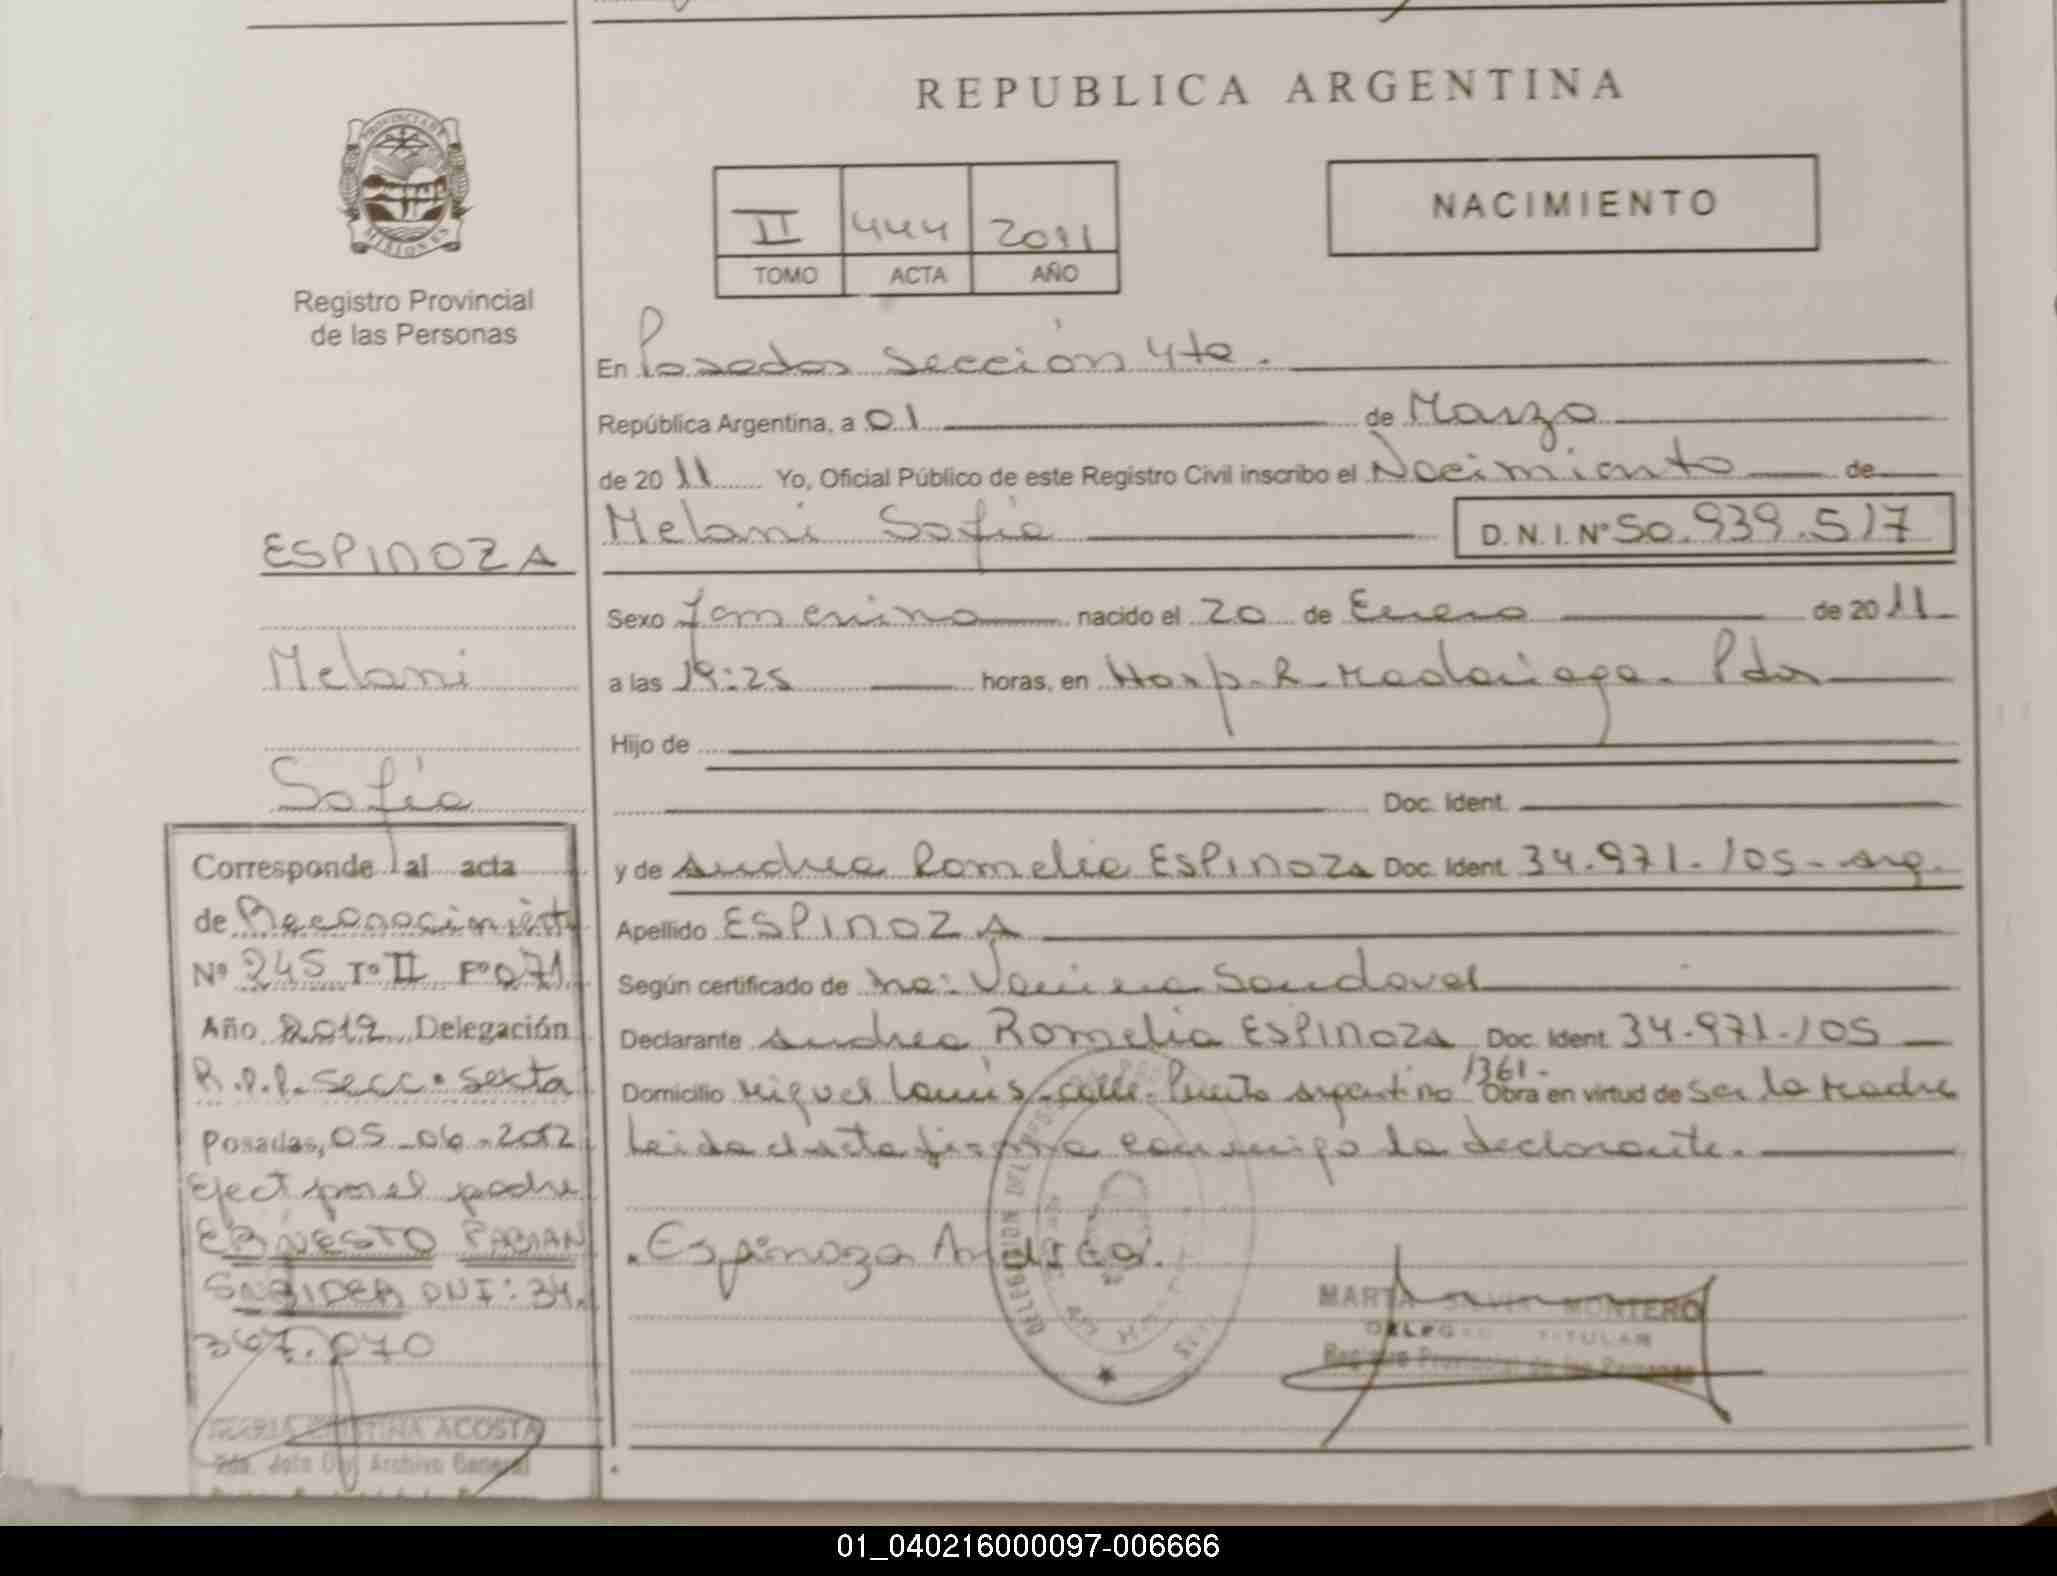 REPUBLICA ARGENTINA
PROVINCIA DE
MISIONES
Registro Provincial
de las Personas
II 444 2011
TOMO ACTA AÑO
NACIMIENTO
En Posadas Sección 4ta.
República Argentina, a 01 de Marzo
de 2011 Yo, Oficial Público de este Registro Civil inscribo el Nacimiento de
Melani Sofía D.N.I.Nº 50.939.517
Sexo Femenino nacido el 20 de Enero de 2011
a las 19:25 horas, en Hosp. R. Madariaga. Pdas
Hijo de
Doc. Ident.
y de Andrea Romelia ESPINOZA Doc. Ident. 34.971.105 - arg.
Apellido ESPINOZA
Según certificado de Sandoval
Declarante Andrea Romelia ESPINOZA Doc. Ident. 34.971.105
Domicilio Miguel Lanús - calle Puerto Argentino 1361 - Obra en virtud de ser la madre
Leída el acta firma conmigo la declarante.
Espinoza Andrea.
MARTA SILVIA MONTERO
DELEGADO TITULAR
Registro Provincial de las Personas
ESPINOZA
Melani
Sofía
Corresponde al acta
de Reconocimiento
Nº 245 Tº II Fº 071
Año 2012 Delegación
R.P.P. Secc. Sexta
Posadas, 05-06-2012
Efect por el padre
ERNESTO FABIAN
SNEIDER DNI: 34.
367.070
MARIA CRISTINA ACOSTA
Archivo General
01_040216000097-006666